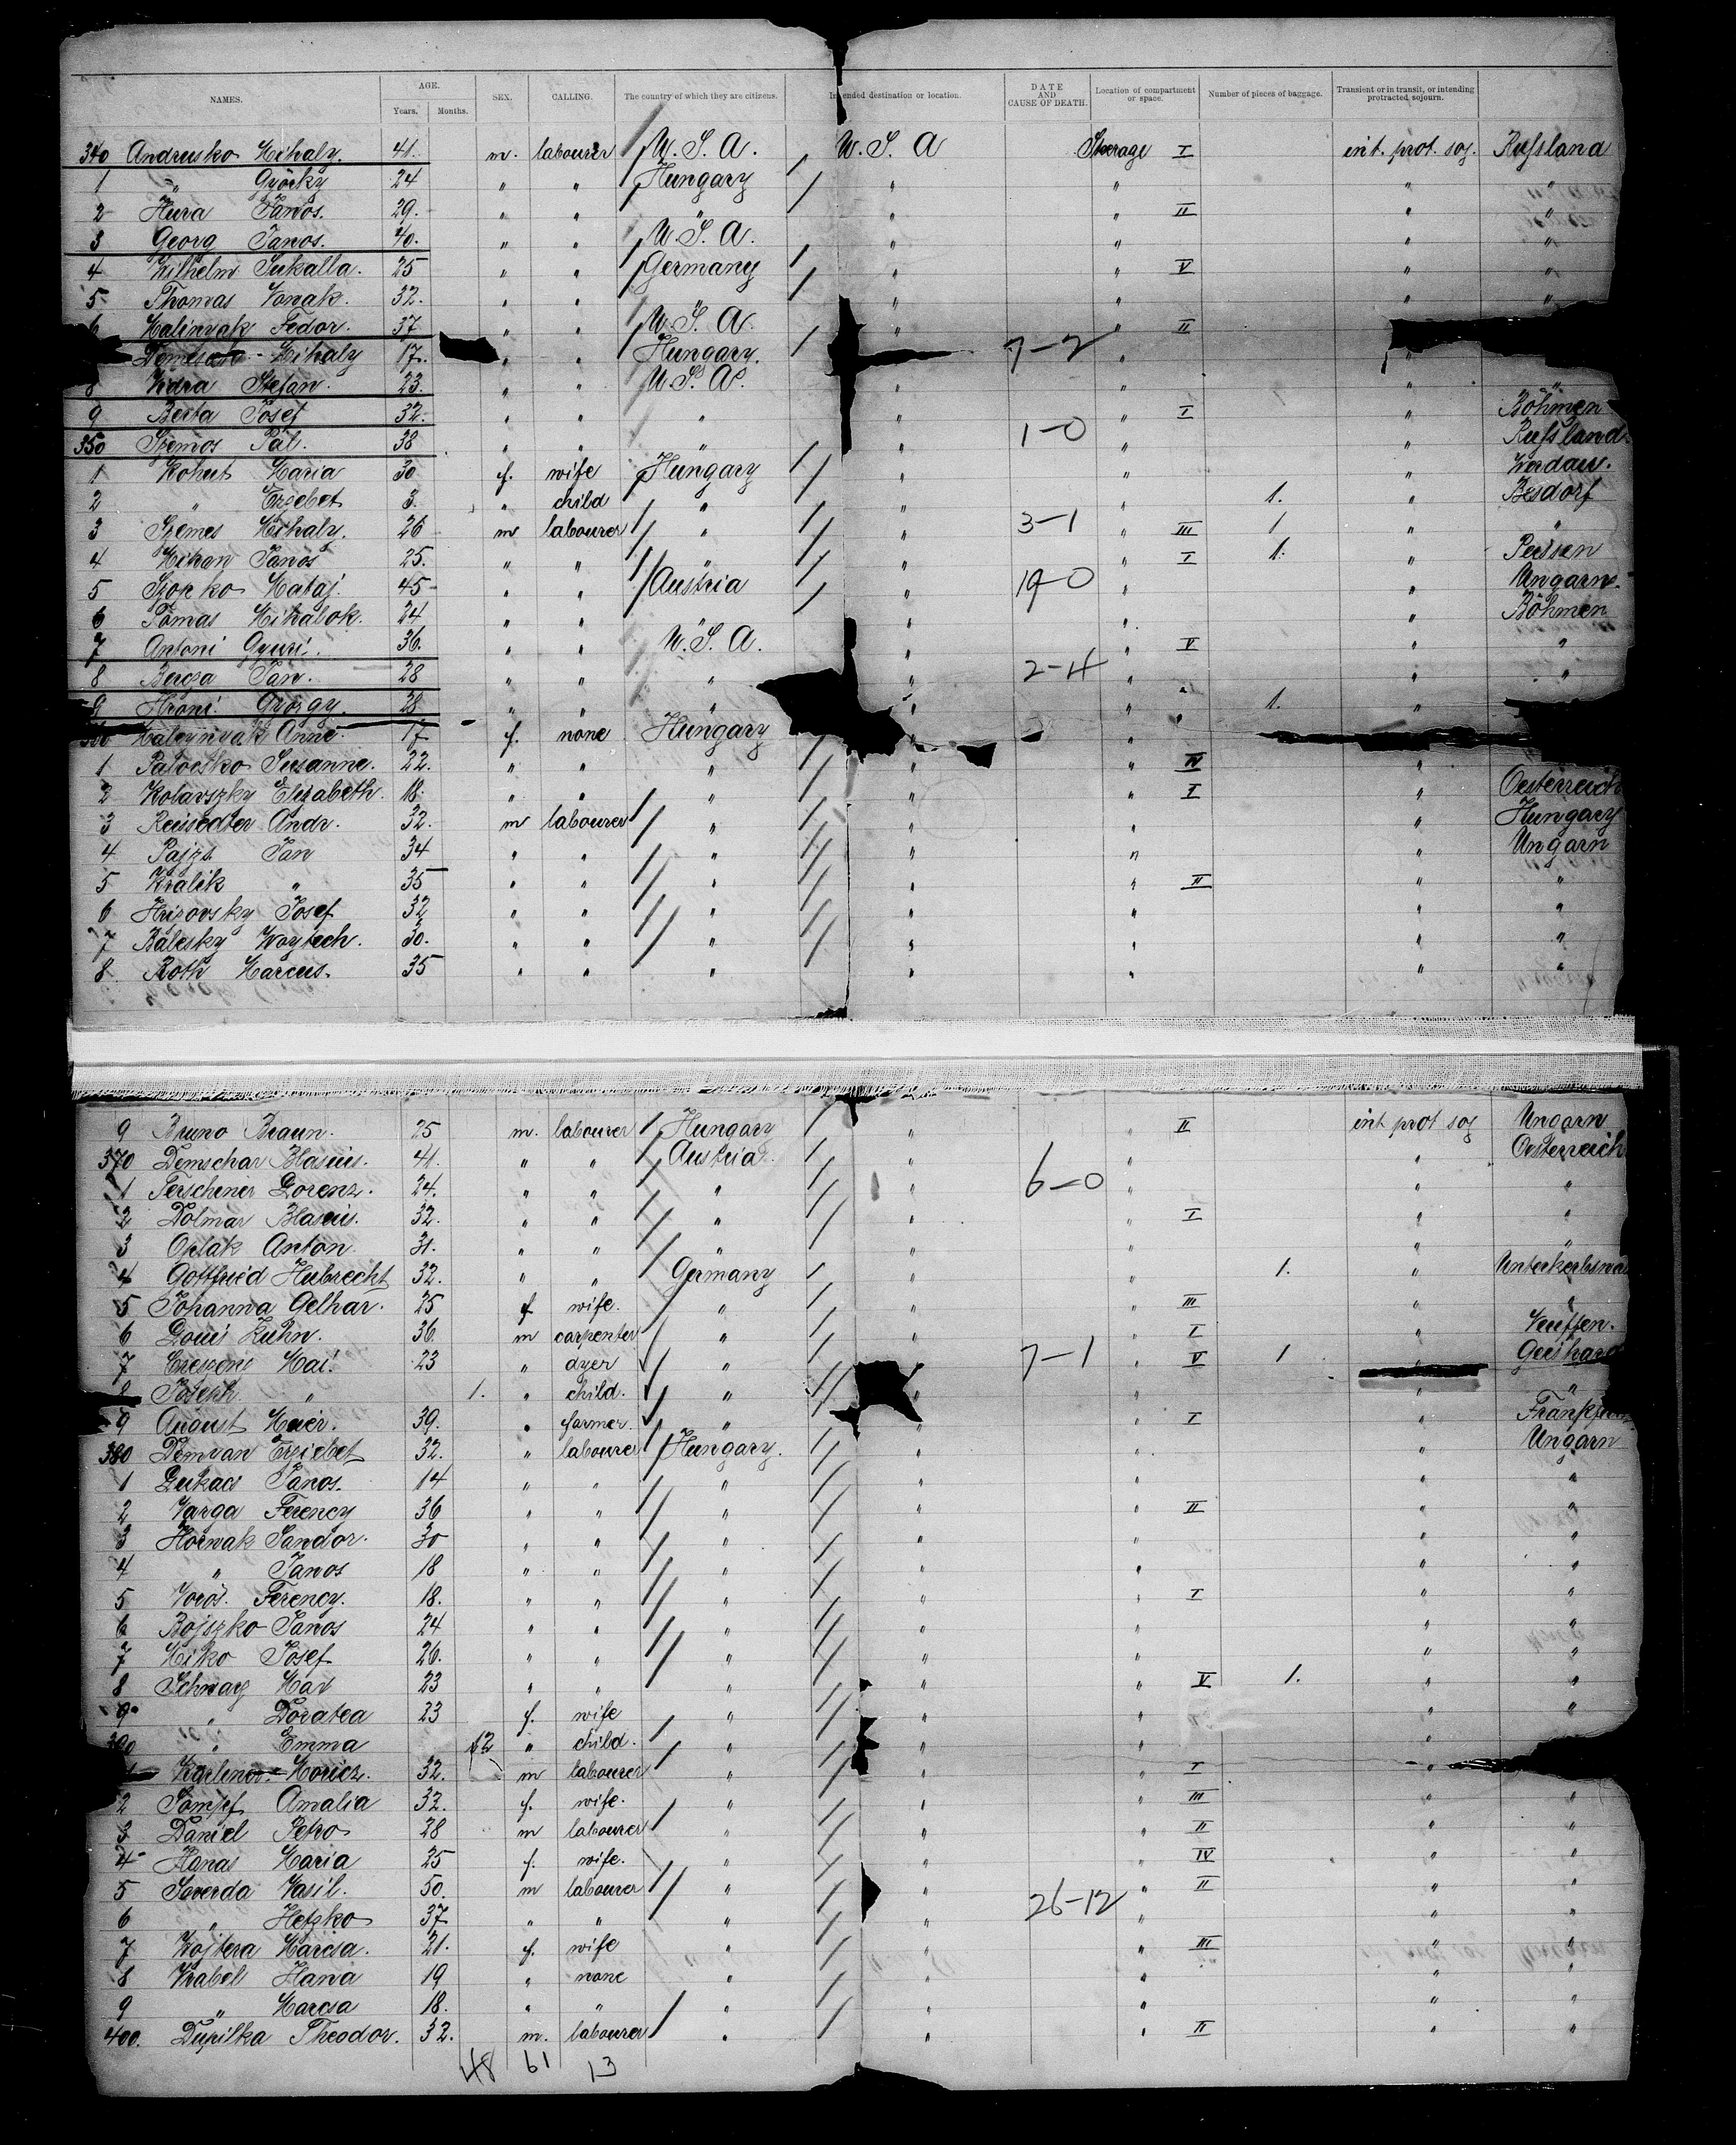 NAMES. AGE. Years. Months. SEX. CALLING. The country of which they are citizens. Intended destination or location. DATE AND CAUSE OF DEATH. Location of compartment or space. Number of pieces of baggage. Transient or in transit, or intending protracted sojourn.
340 Andrusko Mihaly. 41. m. labourer U. S. A. U. S. A Steerage I int. prot. soj. Russland
1 " György 24 " " Hungary " " " "
2 Hura János. 29. " " " " " II " "
3 Georg Janos. 40. " " U. S. A. " " " "
4 Wilhelm Sukalla. 25 " " Germany " " V " "
5 Thomas Vonak. 32. " " " " " " "
6 Malinvak Fedor. 37 " " U. S. A. " " II
Mihaly 17. " " Hungary. 7-2 " "
8 Vidra Stefan. 23. " " U. S. A. " " " "
9 Berta Josef 32. " " " " " I " Böhmen
350 Szemos Pál. 38 " " " " 1-0 " " Russland
1 Kohut Maria 30 f. wife Hungary " " " Werdau.
2 " Erzebet 3. " child " " " 1. " Besdorf
3 Szemes Mihaly. 26 m labourer " " 3-1 " III 1 " "
4 Mihan Janos 25. " " " " " I 1. "
5 Szopko Mataj. 45 " " Austria " 19-0 " " Ungarn
6 Tomas Mihalok. 24 " " " " " " Böhmen
7 Antoni Gyuri. 36. " " U. S. A. " " V " "
8 Beroza Jan. 28 " " " " 2-4 " " "
9 Hroni György. 28 " " " " " " 1. "
Anne. 17 f. none Hungary " "
1 Palocsko Susanne. 22. " " " " " IV "
2 Kolavszky Elizabeth. 18. " " " " " I " Oesterreich
3 Reissedler Andr. 32. m labourer " " " " Hungary
4 Pajzs Jan 34 " " " " " " Ungarn
5 Kralik " 35 " " " " " II " "
6 Hrizovsky Josef 32 " " " " " " "
7 Balesky Woytech. 30. " " " " " " "
8 Roth Marcus. 35 " " " " " " "
9 Bruno Braun. 25 m. labourer Hungary " " II int prot soj Ungarn
370 Demschar Blasius. 41. " " Austria " " " Oesterreich
1 Terschener Lorenz. 24. " " " " 6-0 " " "
2 Dolmar Blasius. 32. " " " " " I " "
3 Oplak Anton. 31. " " " " " " "
4 Gottfried Hubrecht 32. " " Germany " " 1. "
5 Johanna Gelhar. 25 f wife. " " " III " "
6 Louis Kuhn. 36. m carpenter " " " I "
7 Mai. 23 " dyer " 7-1 " V 1 "
8 Joseph " 1. " child. " " " "
9 August Meier. 39. " farmer. " " " I "
380 Demvan Erziebet 32. " labourer Hungary. " " " Ungarn
1 Lukacs Janos. 14 " " " " " " "
2 Varga Ferency 36 " " " " " II " "
3 Horvak Sandor. 30 " " " " " " "
4 " Janos 18 " " " " " " "
5 Vorös. Ferency. 18. " " " " " I " "
6 Bojszko Janos 24 " " " " " " "
7 Miko Josef 26. " " " " " " "
8 Schwarz Mar 23 " " " " " V 1. " "
9 " Doratea 23 f. wife " " " " "
390 " Emma " child. " " " "
Moricz. 32. m labourer " " " I "
2 Amalia 32. f. wife. " " " III " "
3 Daniel Petro 28 m labourer " " " II " "
4 Hanas Maria 25 f. wife. " " " IV " "
5 Saverda Vasil. 50. m labourer " " " II " "
6 " Hetzko 37 " " " " 26-12 " " "
7 Wojtera Marcsa. 21. f. wife " " " III " "
8 Vrabel Hana 19 " none " " " " "
9 " Marcsa 18. " " " " " " "
400. Dupilka Theodor. 32. m. labourer " " " II " "
48 61 13